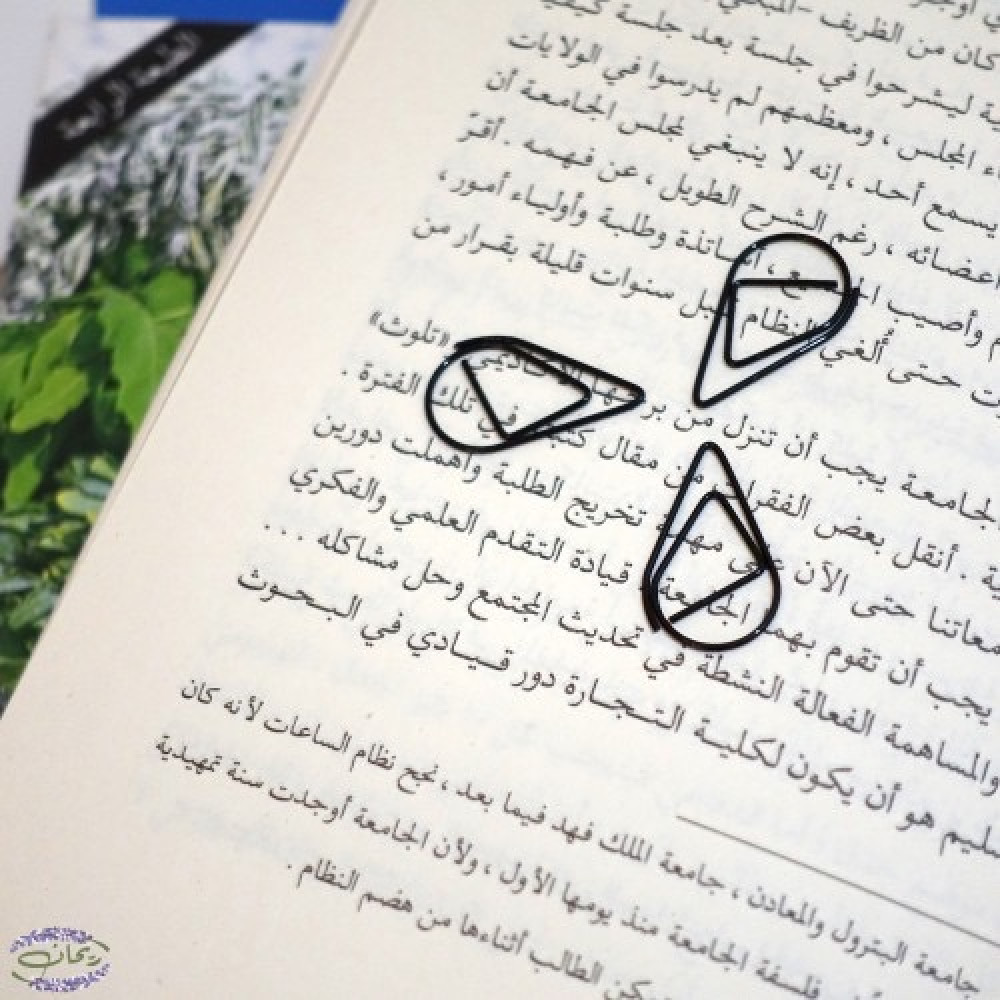 كان من الظريف - المبكي
ية ليشرحوا في جلسة بعد جلسة كيفية
اء المجلس ، ومعظمهم لم يدرسوا في الولايات
يسمع أحد ، إنه لا ينبغي لمجلس الجامعة أن
اعضائه ، رغم الشرح الطويل ، عن فهمه . أقرّ
م وأصيب ، أساتذة وطلبة وأولياء أمور ،
ت حتى أُلغي النظام قبل سنوات قليلة بقرار من
لجامعة يجب أن تنزل من برجها الأكاديمي «تلوث»
ية . أنقل بعض الفقرات من مقال كتبته في تلك الفترة .
معاتنا حتى الآن على مهمة تخريج الطلبة وأهملت دورين
يجب أن تقوم بهما الجامعة قيادة التقدم العلمي والفكري
والمساهمة الفعالة النشطة في تحديث المجتمع وحل مشاكله . . .
سليم هو أن يكون لكلية التجارة دور قيادي في البحوث
جامعة البترول والمعادن ، جامعة الملك فهد فيما بعد ، نجح نظام الساعات لأنه كان
فلسفة الجامعة منذ يومها الأول ، ولأن الجامعة أوجدت سنة تمهيدية
يمكن الطالب أثناءها من هضم النظام .
الطبعة الرابعة
ريحان